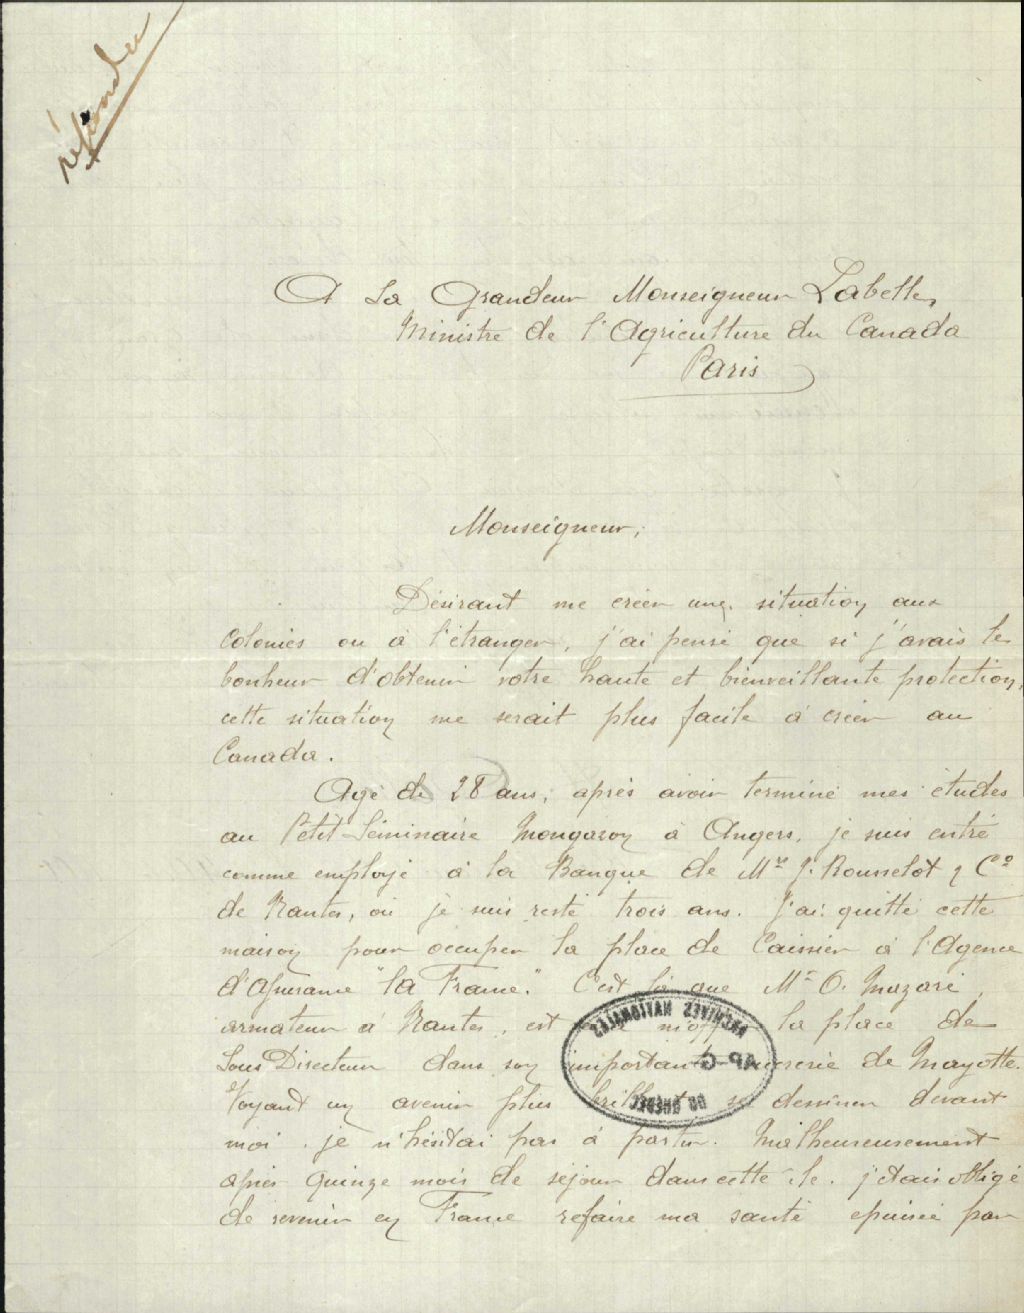 répondu
A Sa Grandeur Monseigneur Labelle,
Ministre de l'Agriculture du Canada
Paris
Monseigneur,
Désirant me créer une situation aux
Colonies ou à l'étranger, j'ai pensé que si j'avais le
bonheur d'obtenir votre haute et bienveillante protection,
cette situation me serait plus facile à créer au
Canada.
Agé de 28 ans, après avoir terminé mes études
au Petit Séminaire Mongazon à Angers, je suis entré
comme employé à la Banque de Mrs J. Rousselot & Co
de Nantes, où je suis resté trois ans. J'ai quitté cette
maison pour occuper la place de Caissier à l'Agence
d'Assurance "la France". C'est là que Mr O.
armateur à Nantes, est m'offrir la place de
Sous Directeur dans son importante sucrerie de Mayotte.
Voyant un avenir plus brillant se dessiner devant
moi, je n'hésitai pas à partir. Malheureusement
après quinze mois de séjour dans cette île, j'étais obligé
de revenir en France refaire ma santé epuisée par
ARCHIVES NATIONALES
AP-G
DU QUEBEC